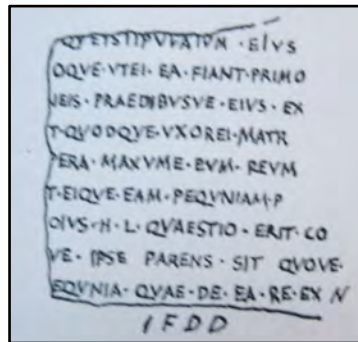 QVEISTIPVLATVM · EIVS
OQVE · VTEI · EA · FIANT · PRIMO
VEIS · PRAEDIBVSVE · EIVS · EX
T · QVODQVE · VXOREI · MATR
PERA · MAXVME · EVM · REVM
T · EIQVE · EAM · PEQVNIAM · P
OIVS · H · L · QVAESTIO · ERIT · CO
VE · IPSE PARENS · SIT QVOVE ·
EQVNIA · QVAE · DE · EA · RE · EX N
I F D D